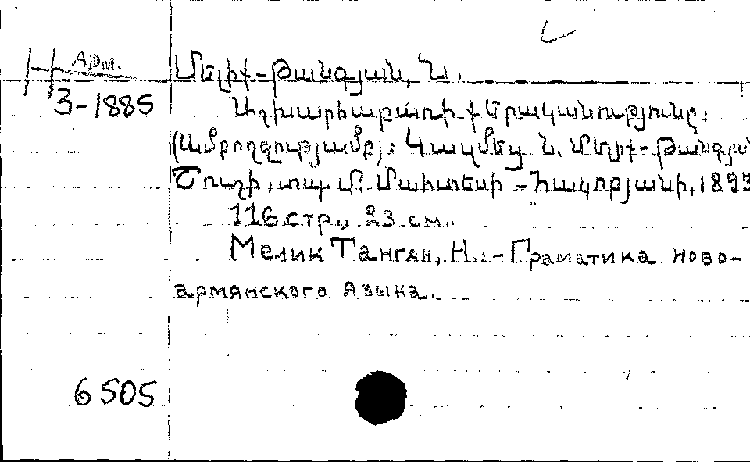 Арм.
Մելիք-Թանգյան, Ն.
3-1885
Աշխարհաբառի քերականությունը:
(ամբողջությամբ): Կազմեց Ն. Մելիք-Թանգյան
Շուշի, տպ. Մ. Մահտեսի-Հակոբյանի, 1893
116 стр., 23 см.
Мелик Тангян, Н. - Граматика ново-
армянского языка.
6505